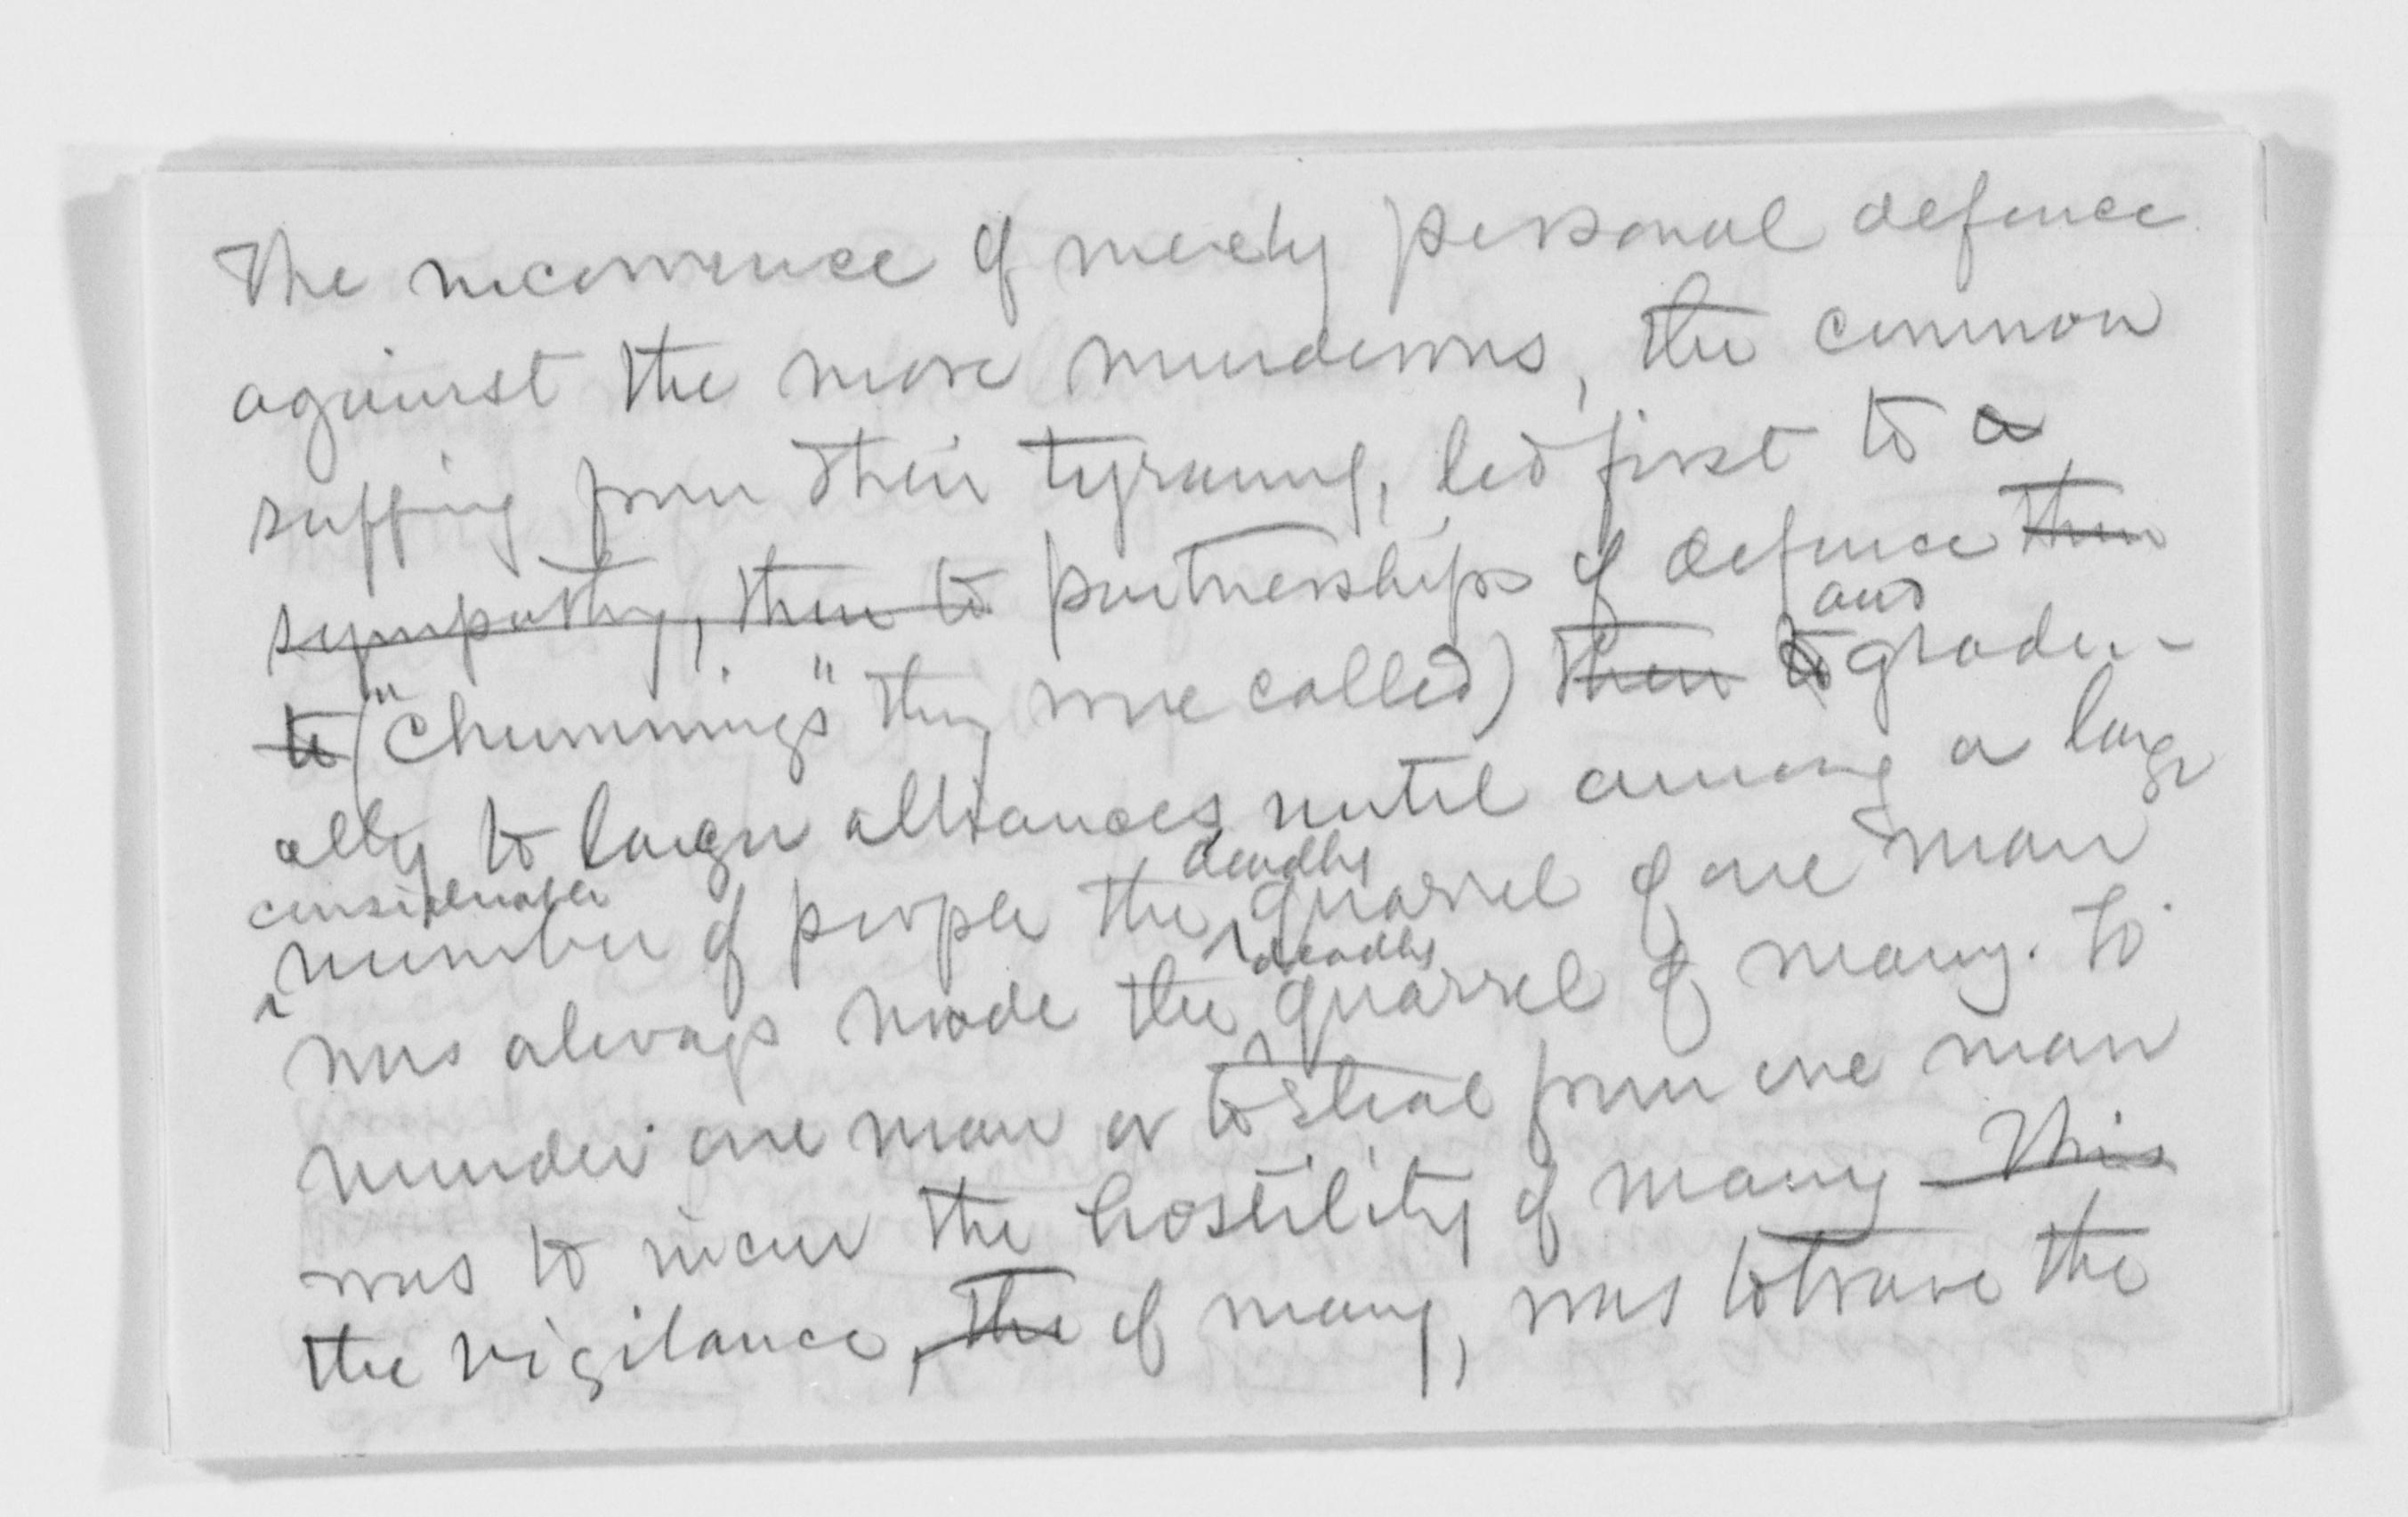 The recurrence of merely personal defence
against the more murderous, the common
suffring from their tyranny, led first to a
sympathy, then to partnerships of defence then
to ("Chummings" they were called) then to and gradu-
ally to larger alliances until among a large
considerable number of people the deadly quarrel of one man
was always made the deadly quarrel of many. To
murder one man or to steal from one man
was to incur the hostility of many This
the vigilance, the of many, was to brave the